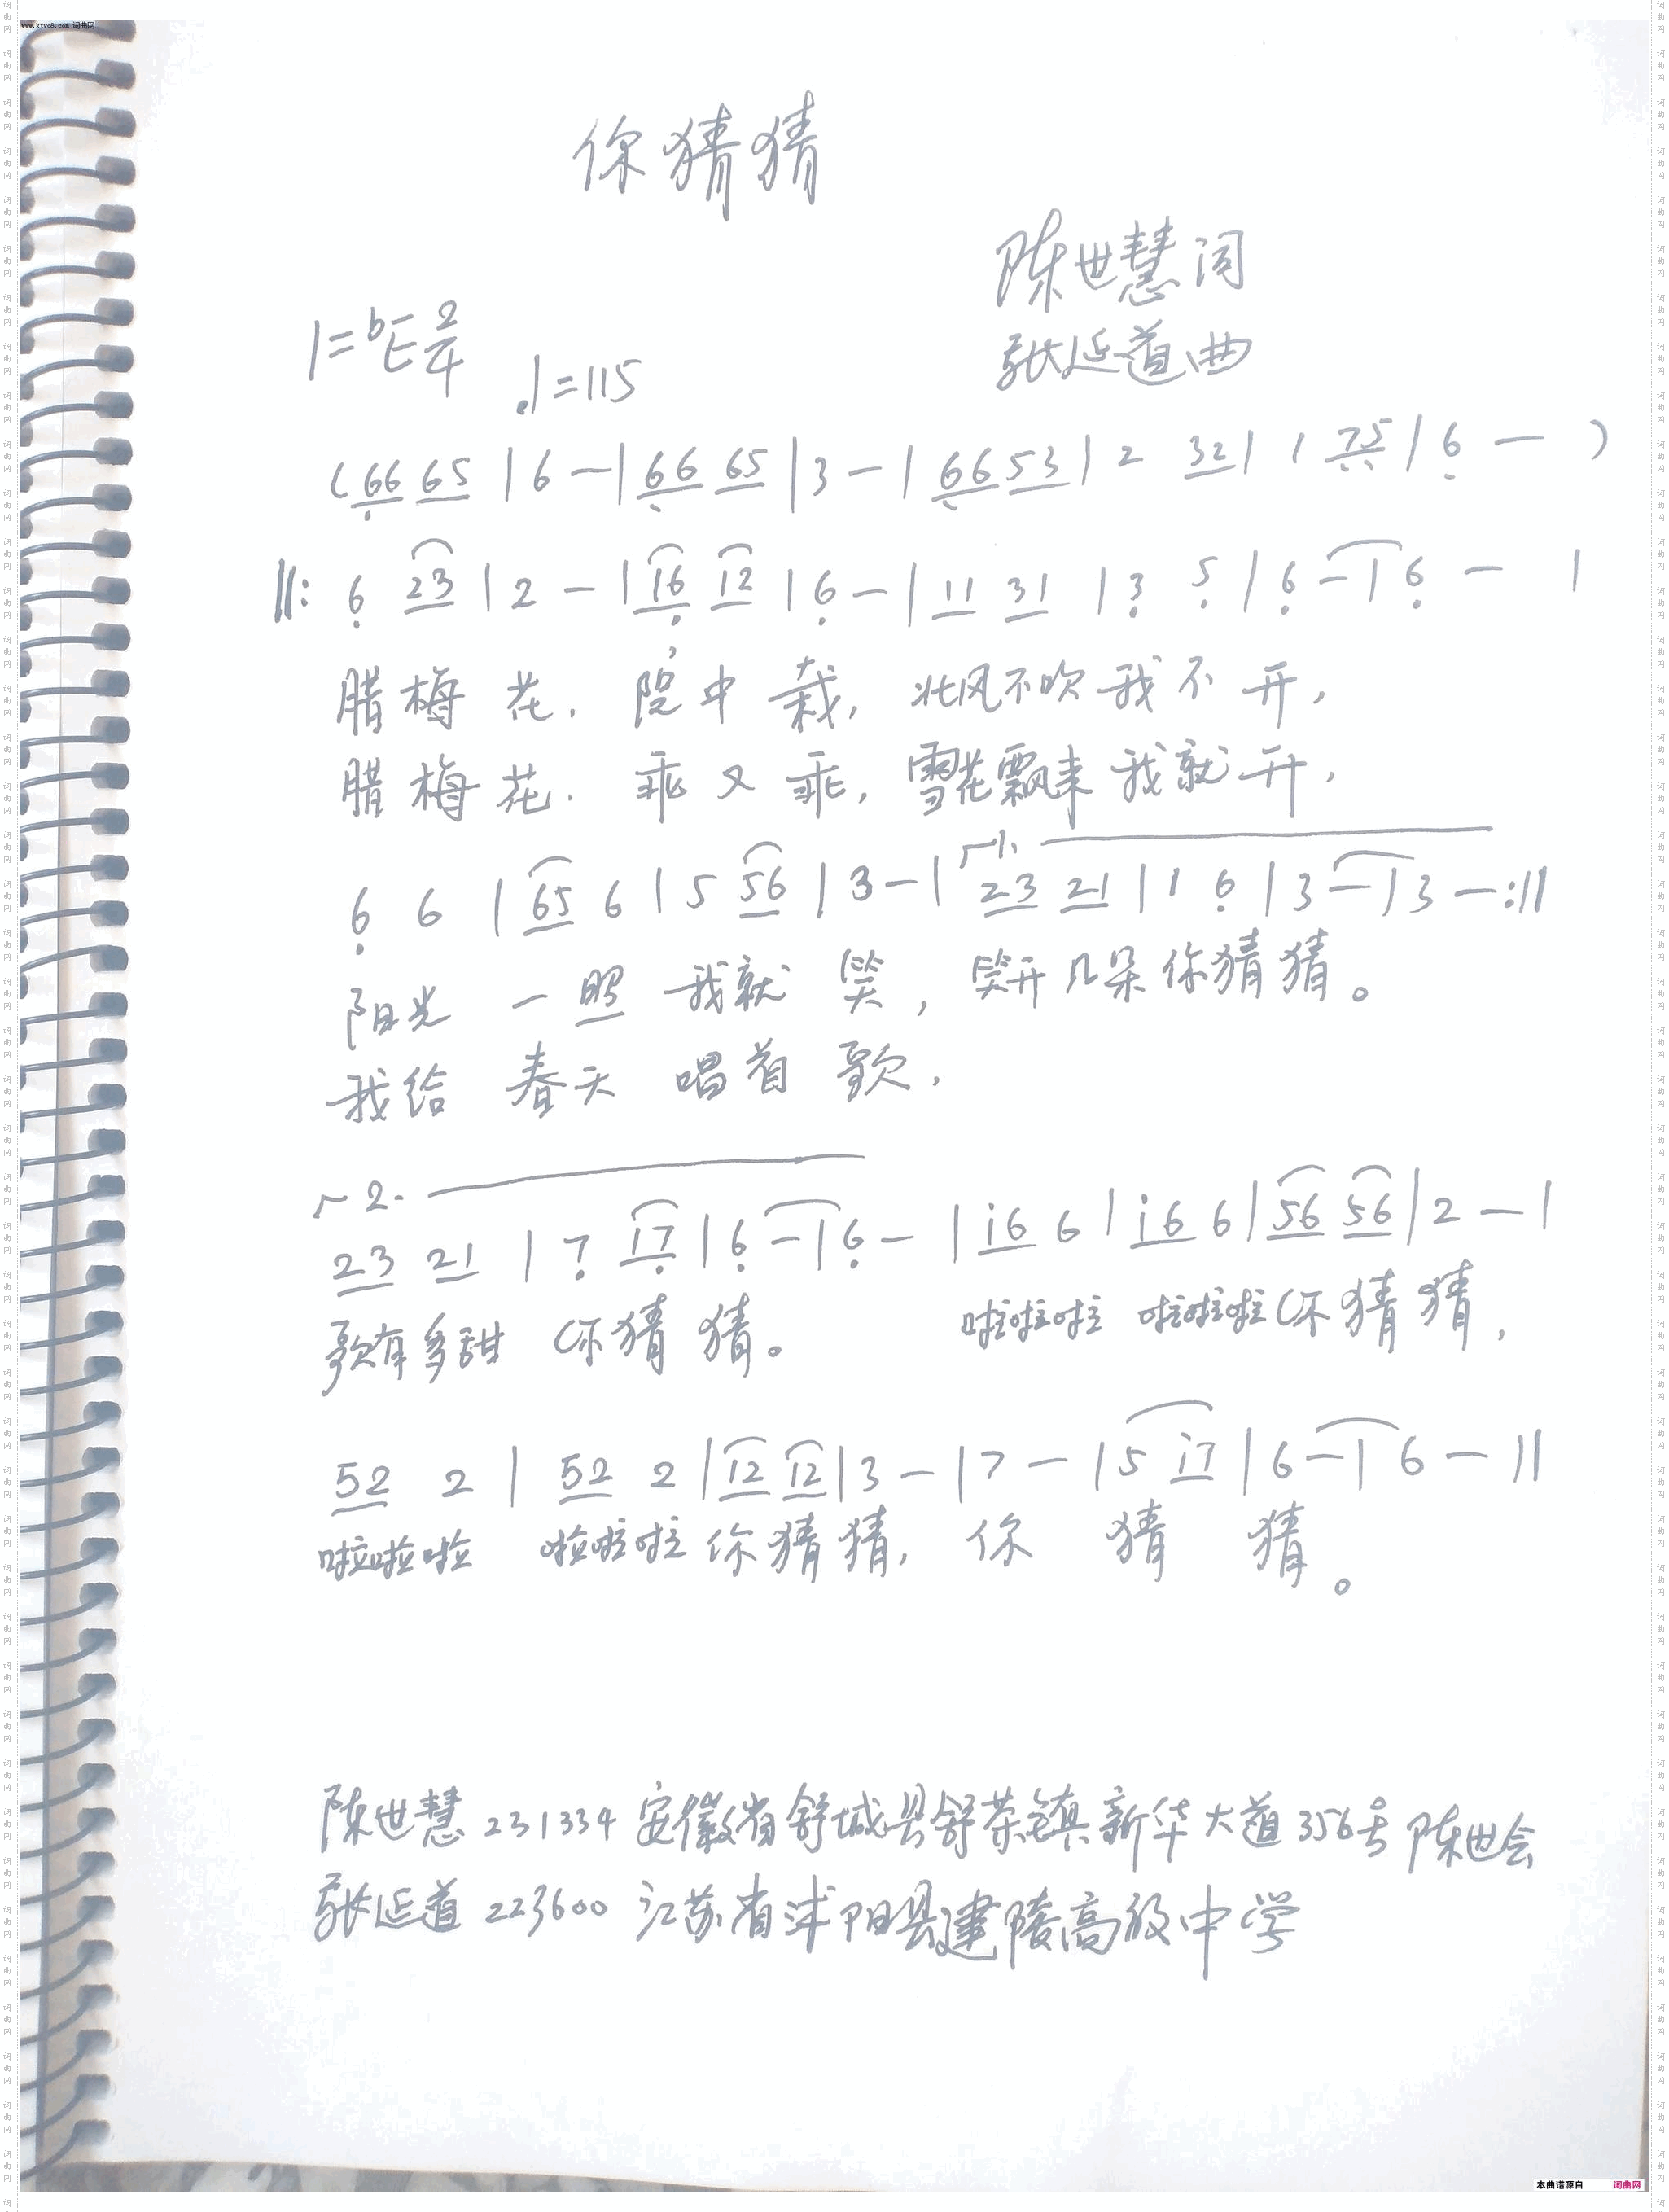 www.ktvc8.com 词曲网
你猜猜
陈世慧词
1=bE 2/4
张延道曲
♩=115
(66 65 | 6 — | 66 65 | 3 — | 66 53 | 2 32 | 1 75 | 6 — )
||: 6 23 | 2 — | 16 12 | 6 — | 11 31 | 3 5 | 6 — | 6 — |
腊梅花，院中栽，北风不吹我不开，
腊梅花，乖又乖，雪花飘来我就开，
1.
6 6 | 65 6 | 5 56 | 3 — | 23 21 | 1 6 | 3 — | 3 — :||
阳光一照我就笑，笑开几朵你猜猜。
我给春天唱首歌，
2.
23 21 | 7 17 | 6 — | 6 — | i6 6 | i6 6 | 56 56 | 2 — |
歌有多甜你猜猜。 啦啦啦 啦啦啦你猜猜，
52 2 | 52 2 | 12 12 | 3 — | 7 — | 5 i7 | 6 — | 6 — ||
啦啦啦 啦啦啦你猜猜，你猜猜。
陈世慧 231334 安徽省舒城县舒茶镇新华大道356号 陈世会
张延道 223600 江苏省沭阳县建陵高级中学
本曲谱源自 词曲网